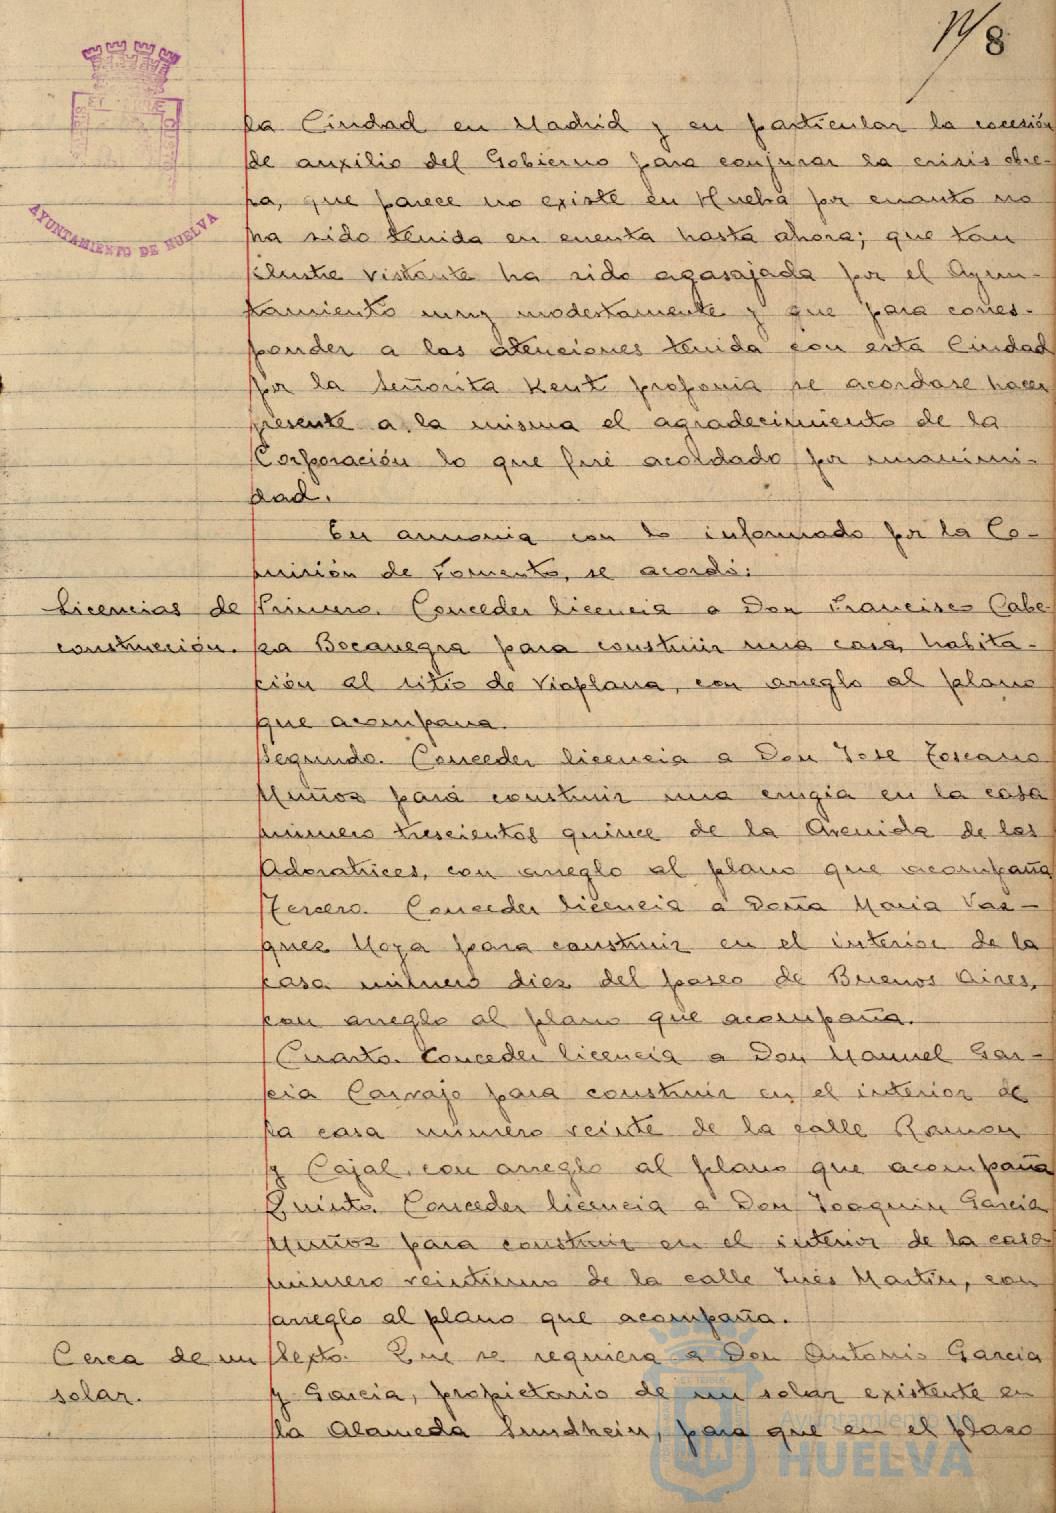 8
AYUNTAMIENTO DE HUELVA
la Ciudad en Madrid y en particular la cocesión
de auxilio del Gobierno para conjurar la crisis obre-
ra, que parece no existe en Huelva por cuanto no
ha sido tenida en cuenta hasta ahora; que tan
ilustre visitante ha sido agasajada por el Ayun-
tamiento muy modestamente y que para corres-
ponder a las atenciones tenida con esta Ciudad
por la Señorita Kent proponia se acordase hacer
presente a la misma el agradecimiento de la
Corporación lo que fué acoldado por unanimi-
dad.
En armonia con lo informado por la Co-
misión de Fomento, se acordó:
Licencias de
construcción.
Primero. Conceder licencia a Don Francisco Cabe-
za Bocanegra para construir una casa habita-
ción al sitio de Viaplana, con arreglo al plano
que acompana.
Segundo. Conceder licencia a Don Jose Toscano
Muñoz para construir una crugia en la casa
número trescientos quince de la Avenida de las
Adoratrices, con arreglo al plano que acompaña
Tercero. Conceder licencia a Doña Maria Vaz-
quez Moya para construir en el interior de la
casa número diez del paseo de Buenos Aires,
con arreglo al plano que acompaña.
Cuarto. Conceder licencia a Don Manuel Gar-
cia Carvajo para construir en el interior de
la casa número veinte de la calle Ramon
y Cajal, con arreglo al plano que acompaña
Quinto. Conceder licencia a Don Joaquin Garcia
Muñoz para construir en el interior de la casa
número veintiuno de la calle Inés Martin, con
arreglo al plano que acompaña.
Cerca de un
solar.
Sexto. Que se requiera a Don Antonio Garcia
y Garcia, propietario de un solar existente en
la Alameda Sundhein, para que en el plazo
Ayuntamiento de
HUELVA